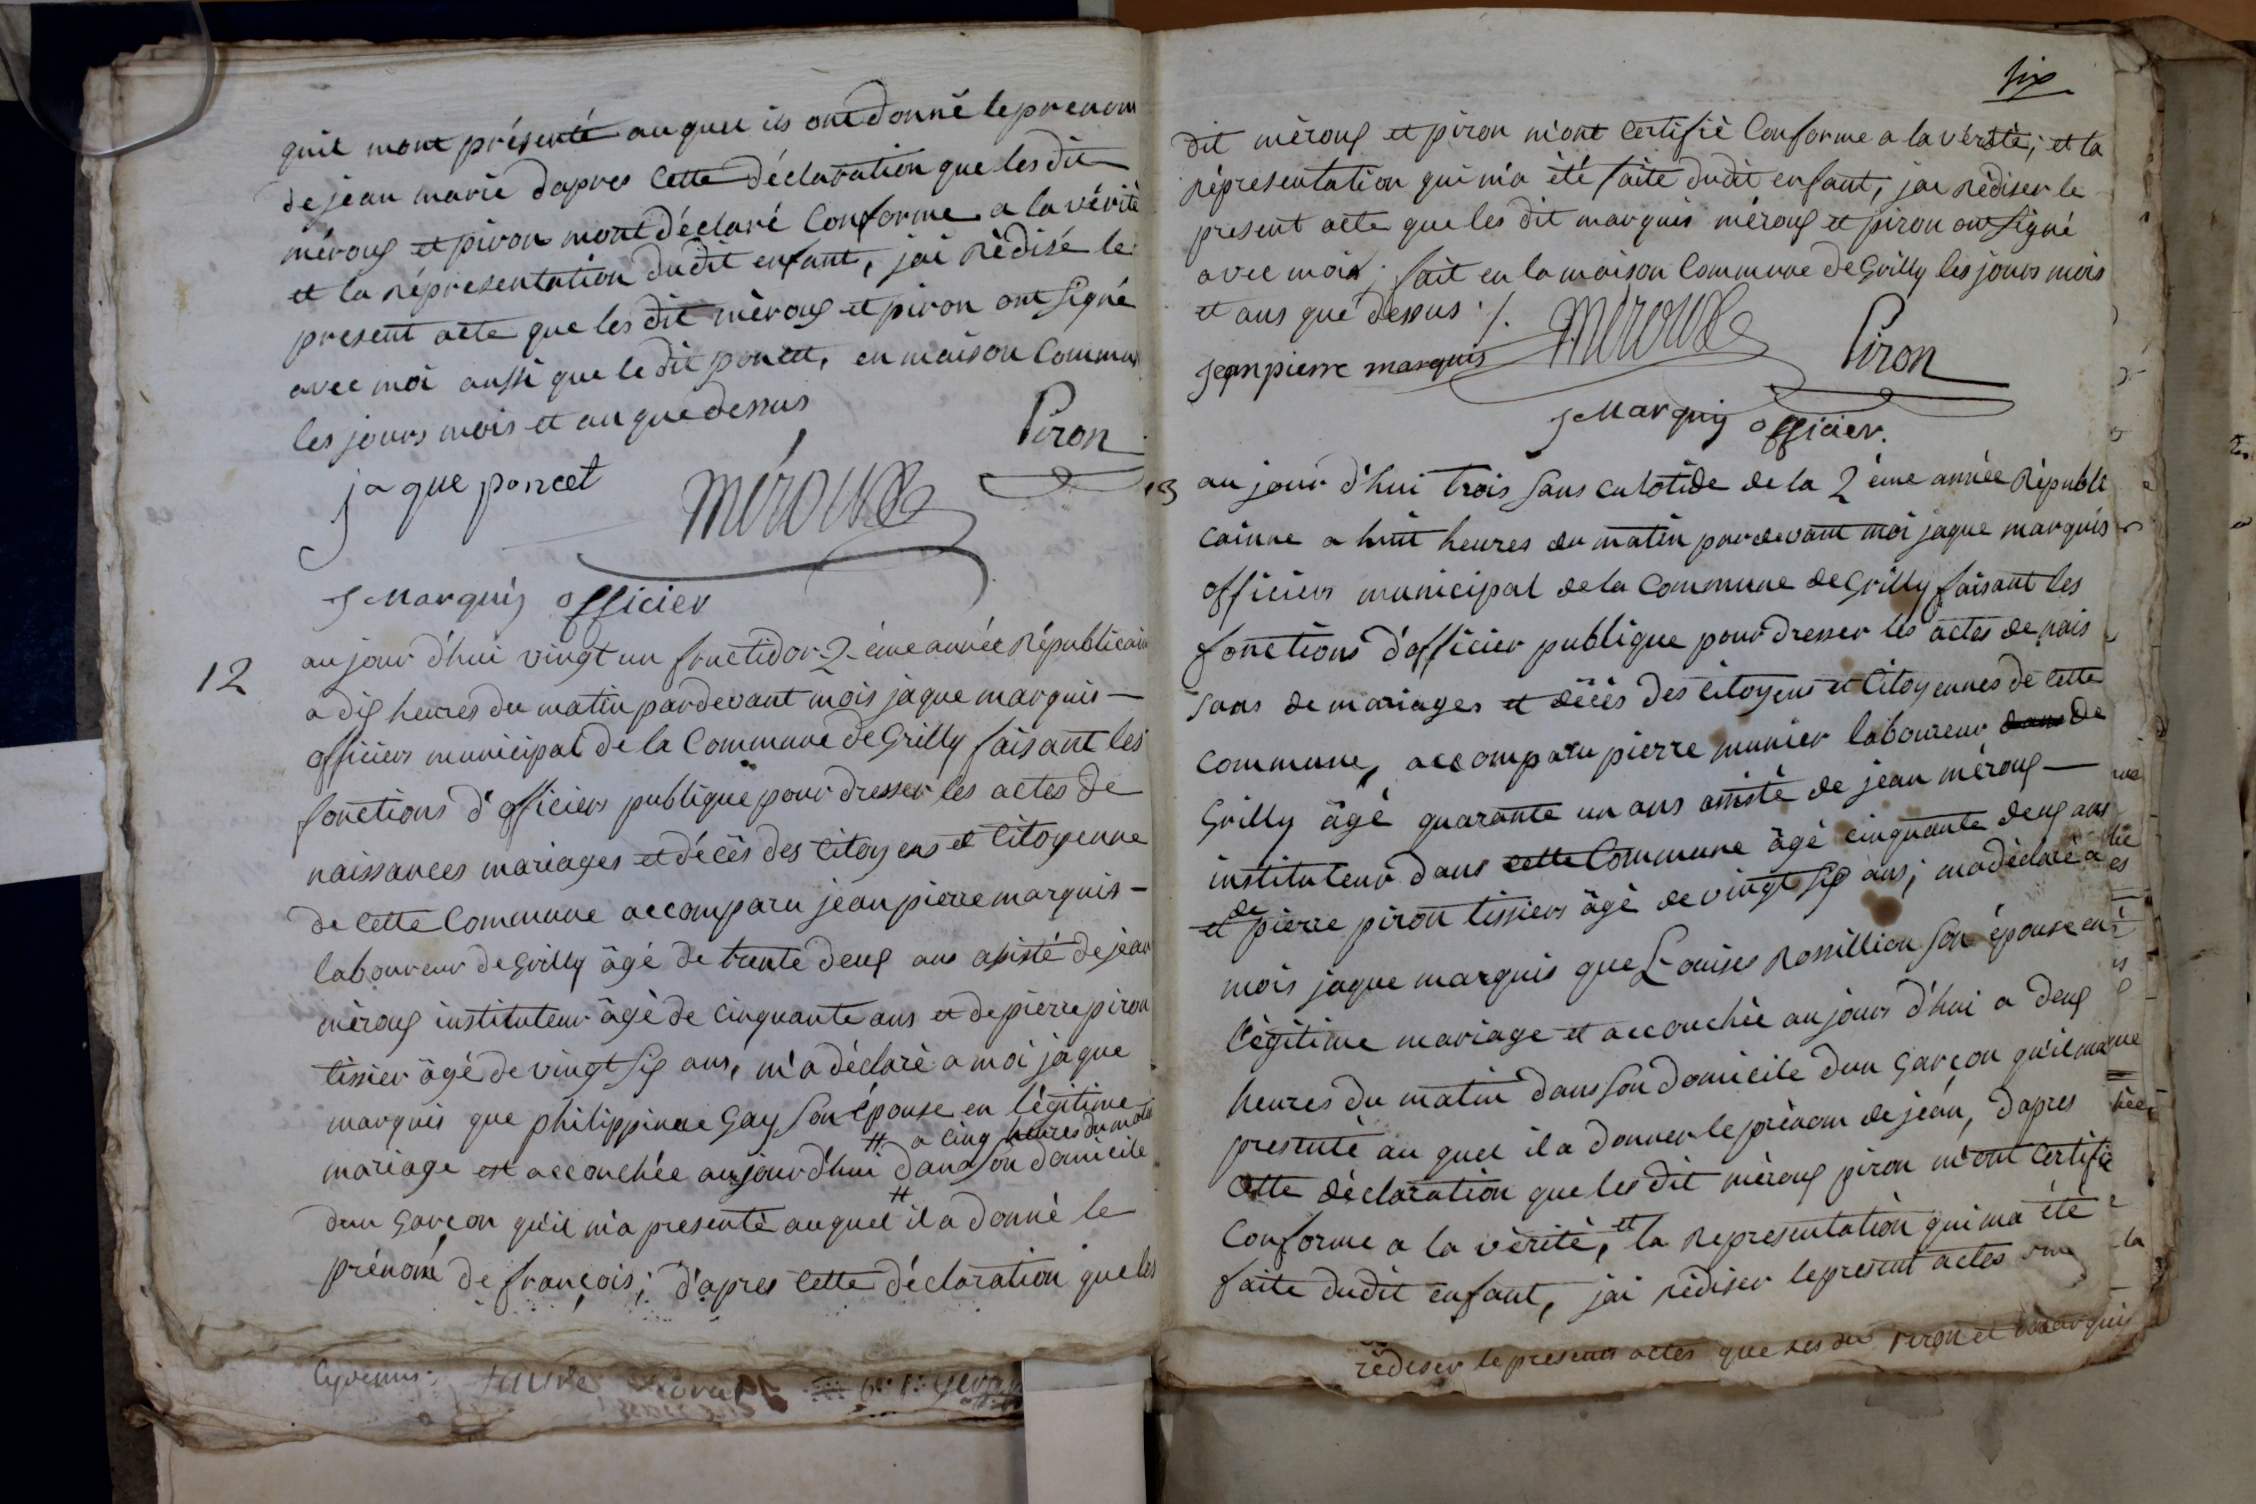 quil mont présenté au quel ils ont donné le prenom
de jean marie dapres cette déclaration que les dit
méroux et piron mont déclaré Conforme a la vérité
et la répresentation dudit enfant, jai rèdisé le
present acte que les dit mèroux et piron ont signé
avec moi aussi que le dit poncet, en maison Commu
les jours mois et an que dessus
jaque poncet
méroux
Piron
J Marquis officier
12
au jour d'hui vingt un fructidor 2 éme année Républicain
a dix heures du matin pardevant mois jaque marquis
officiers municipal de la Commune de Grilly faisant les
fonctions d'officiers publique pour dresser les actes de
naissances mariages et décès des Citoyens et Citoyenne
de cette Commune accomparu jean pierre marquis
laboureur de Grilly âgé de trente deux ans assisté de jean
mèroux instituteur âgé de cinquante ans et de pierre piron
tissier âgé de vingt six ans, m'a déclaré a moi jaque
marquis que philippine Gay son épouse en légitime
# a cinq heures du matin
mariage est accouchée aujourd'hui # dans son domicile
dun garçon qu'il m'a presenté auquel il a donné le
prénom de françois; d'apres cette déclaration que les
six
dit mèroux et piron m'ont certifié Conforme a la vérité; et la
répresentation qui m'a été faite dudit enfant, jai rédiser le
present acte que les dit marquis méroux et piron ont signé
avec mois; fait en la maison Commune de Grilly les jours mois
et ans que dessus ./.
jean pierre marquis
Méroux
Piron
J Marquis officier.
13
au jour d'hui trois sans culotide de la 2 éme année Républi
cainne a huit heures du matin pardevant moi jaque marquis
officiers municipal de la Commune de Grilly faisant les
fonctions d'officier publique pour dresser les actes de nais
sans de mariages et décés des Citoyens et Citoyennes de cette
Commune, accomparu pierre munier laboureur dans de
Grilly âgé quarante un ans assisté de jean méroux
instituteur dans cette Commune âgé cinquante deux ans
et de pierre piron tissiers âgé de vingt six ans; ma déclaré a
mois jaque marquis que Louises Rossillion son épouse en
légitime mariage et accouchée au jours d'hui a deux
heures du matin dans son domicile dun garçon qu'il ma
presenté au quel il a donner le prénom de jean, dapres
cette déclaration que les dit méroux piron m'ont certifié
Conforme a la vérité, et la representation qui ma été
faite dudit enfant, jai rédiser le present actes
rédiser le present actes que les dit Piron et marquis